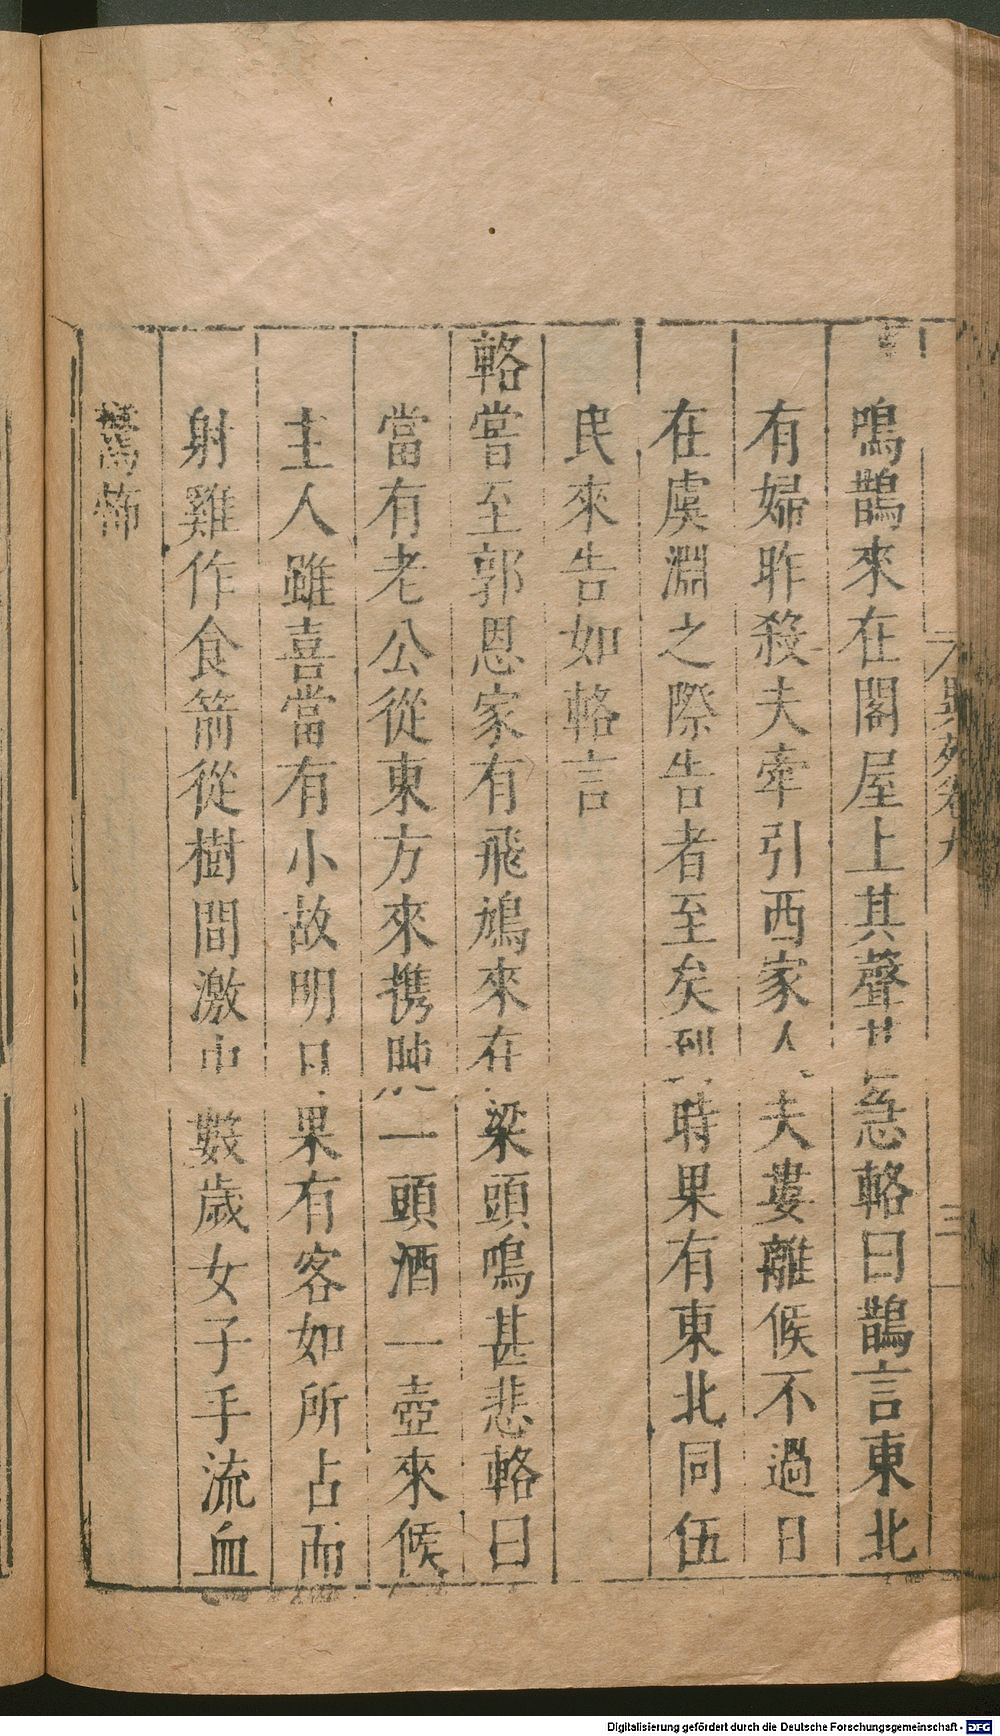 鳴鵲來在閣屋上其聲甚急輅曰鵲言東北
有婦昨殺夫牽引西家人夫婁離候不過日
在虞淵之際告者至矣到時果有東北同伍
民來告如輅言
輅嘗至郭恩家有飛鳩來在梁頭鳴甚悲輅曰
當有老公從東方來携豚一頭酒一壺來候
主人雖喜當有小故明日果有客如所占而
射雞作食箭從樹間激中數歲女子手流血
驚怖
異苑卷九
三
Digitalisierung gefördert durch die Deutsche Forschungsgemeinschaft - DFG